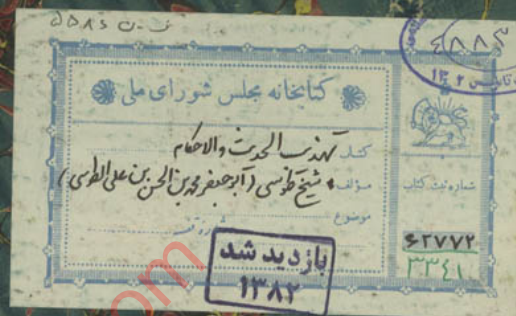 ف-ن ۵۵۸۶
۴۸۸۳
۱۳۰۲
کتابخانه مجلس شورای ملی
کتاب تهذیب الحدیث والاحکام
مؤلف شیخ طوسی (ابوجعفر محمد بن الحسن بن علی الطوسی)
موضوع
شماره ثبت کتاب
۶۲۷۷۲
۳۳۴۱
بازدید شد
۱۳۸۲
com